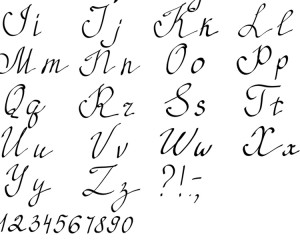 Ii Jj Kk Ll
Mm Nn Oo Pp
Qq Rr Ss Tt
Uu Vv Ww Xx
Yy Zz ?!-;
1234567890